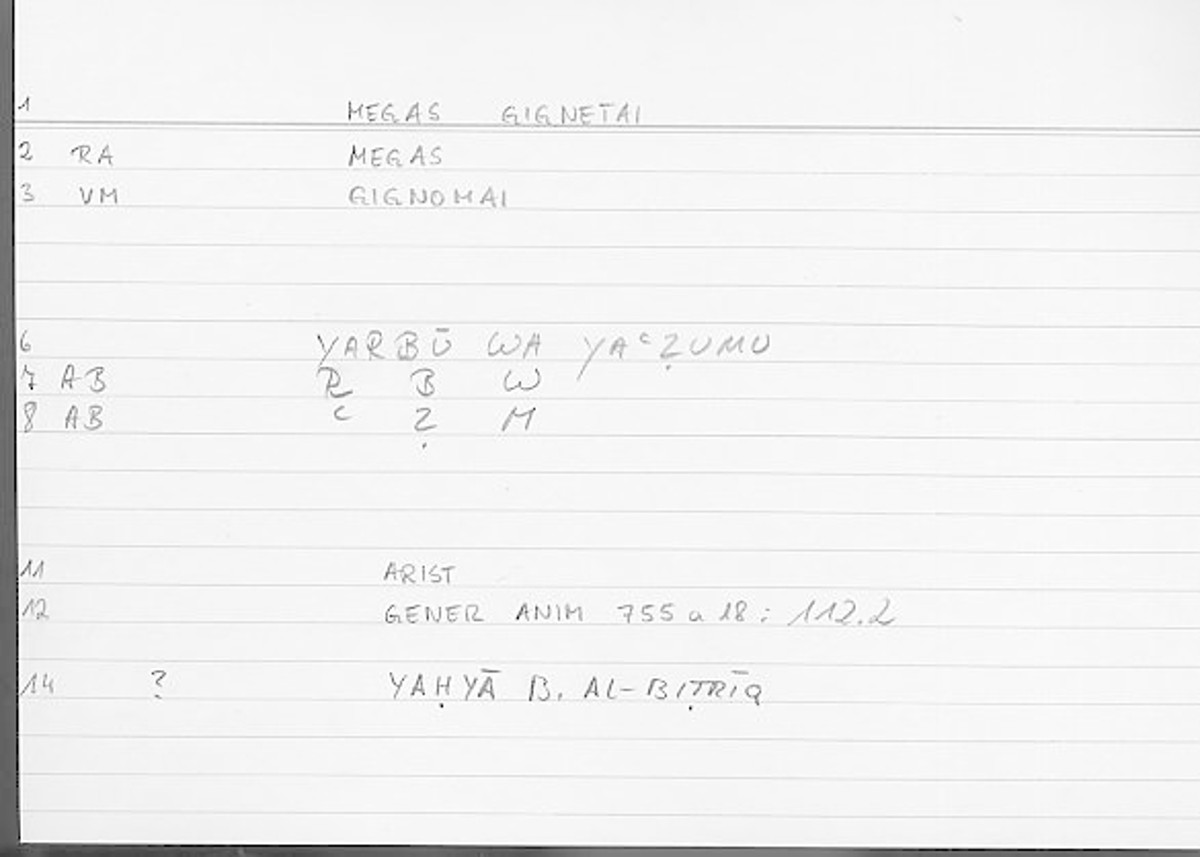 1 MEGAS GIGNETAI
2 RA MEGAS
3 VM GIGNOMAI
6 YARBŪ WA YAʿẒUMU
7 AB R B W
8 AB ʿ Ẓ M
11 ARIST
12 GENER ANIM 755 a 18 : 112.2
14 ? YAḤYĀ B. AL-BIṬRĪQ